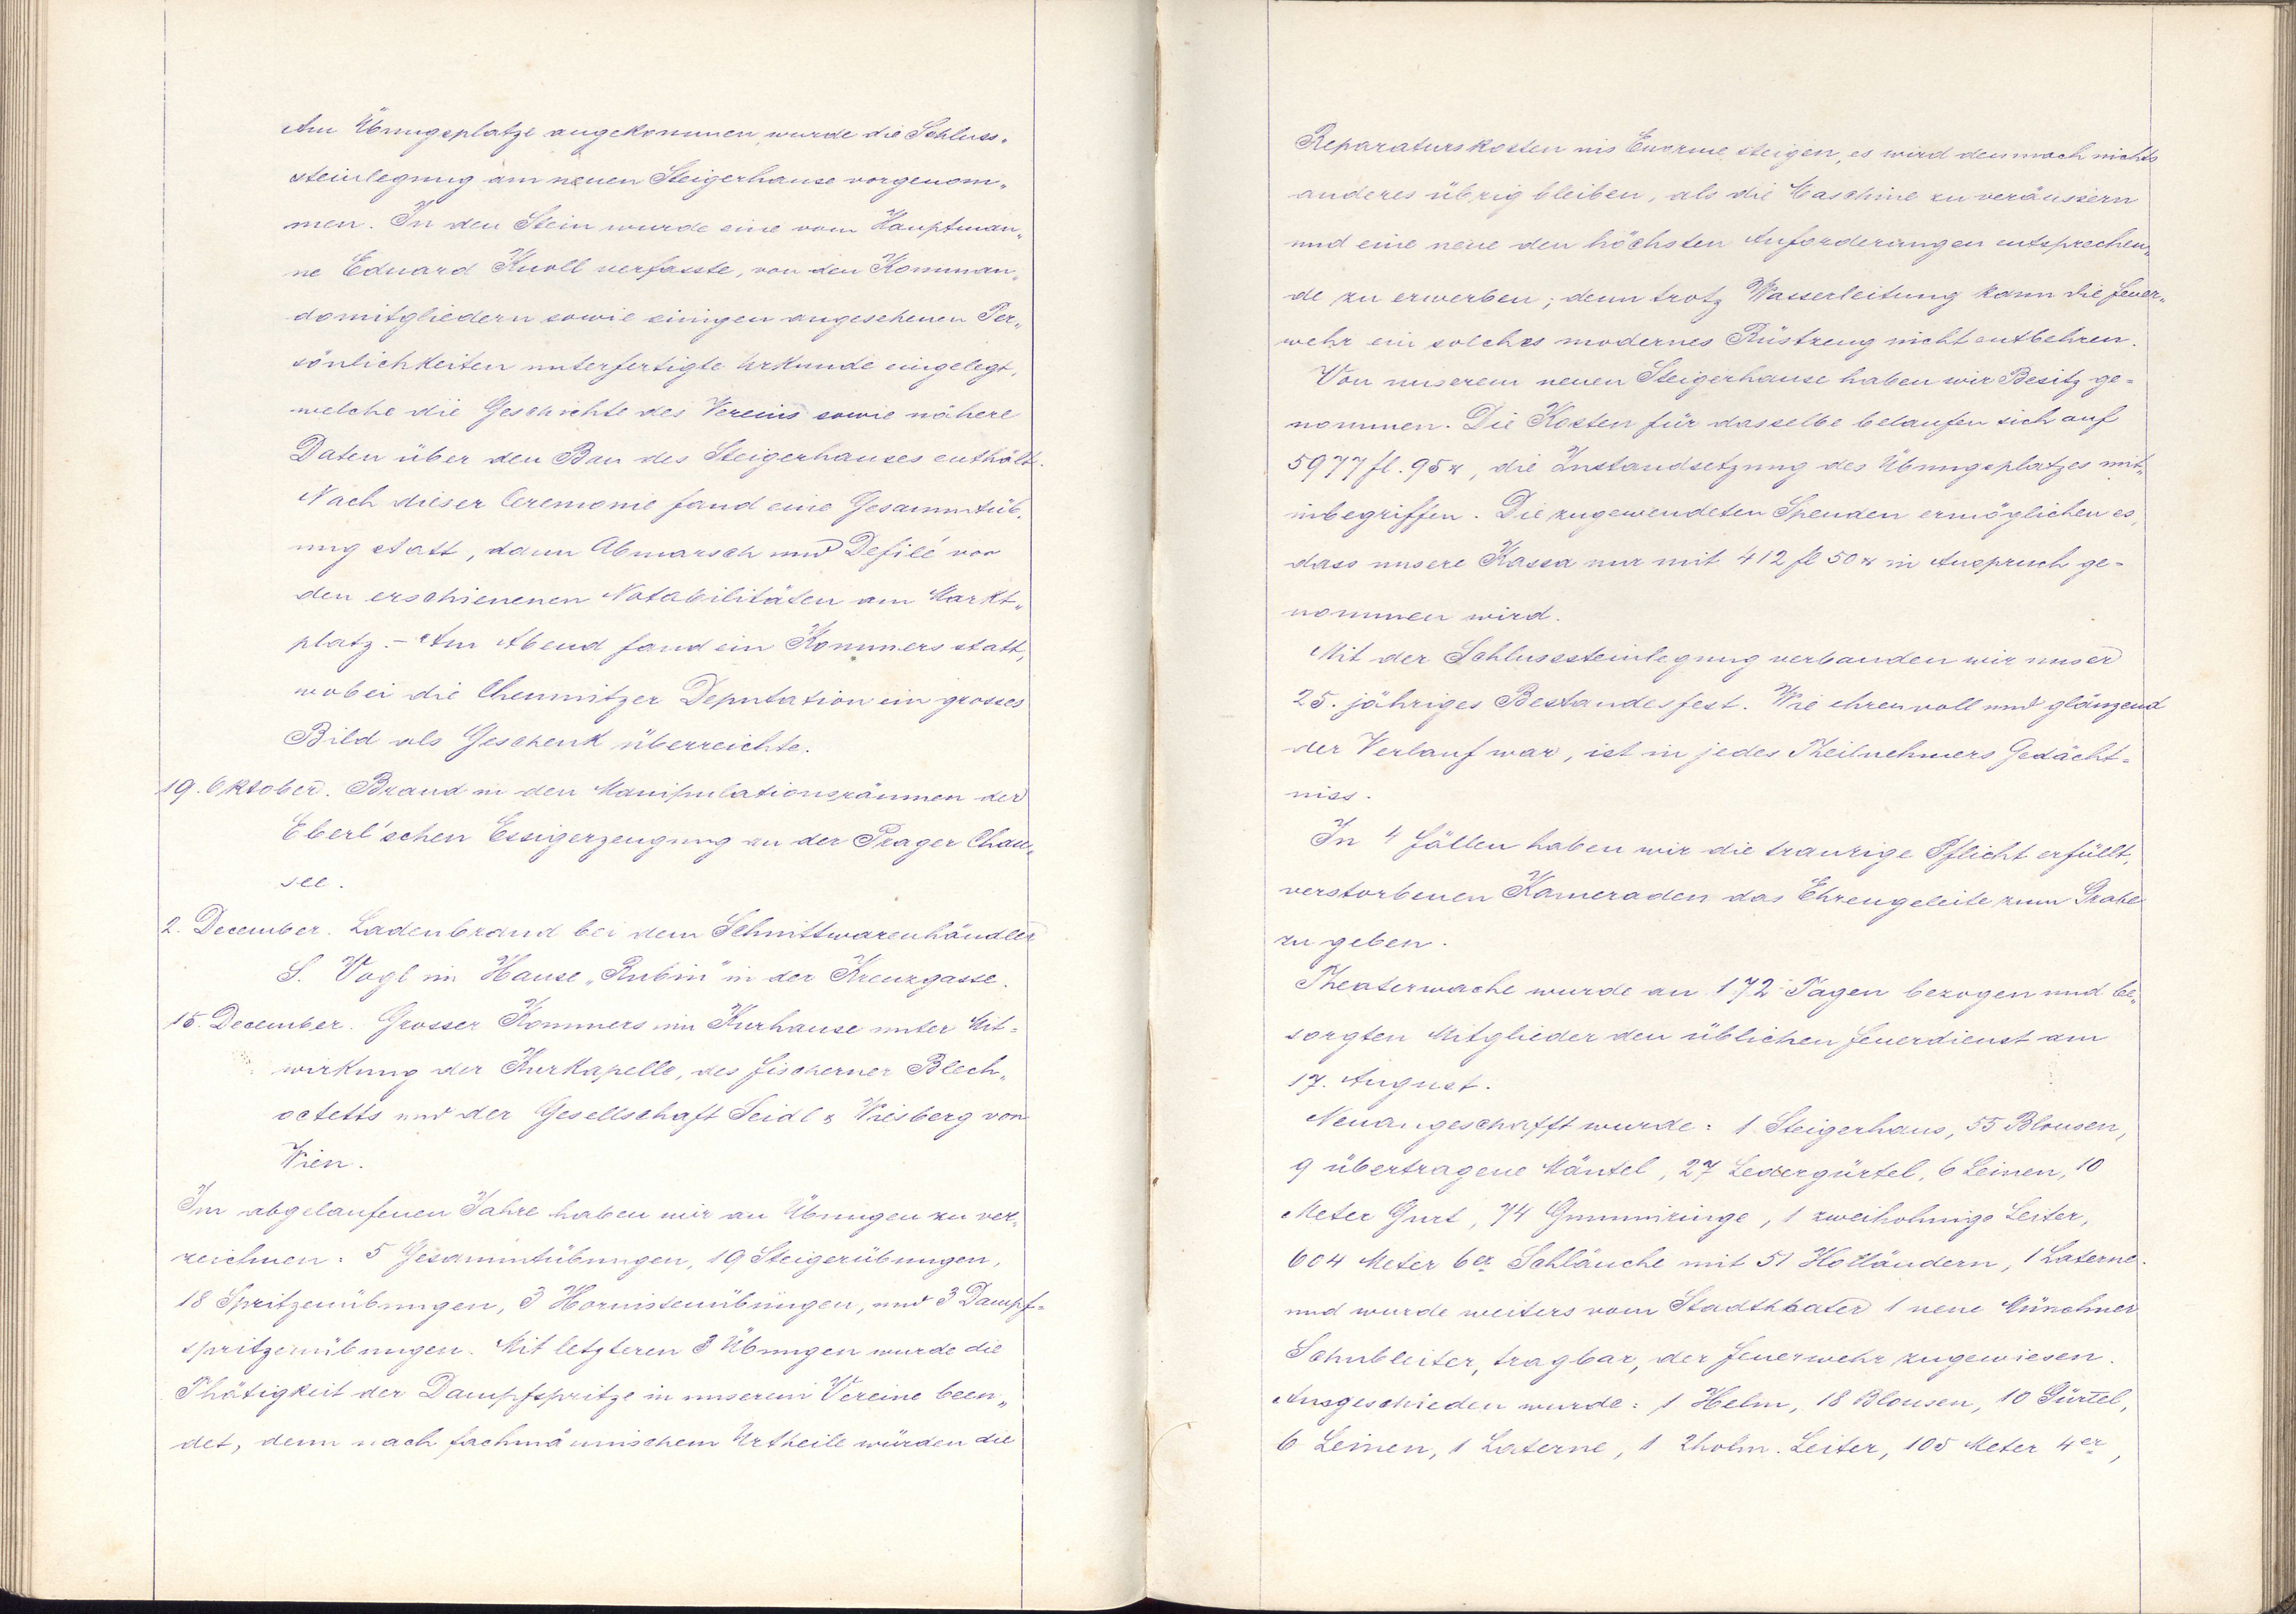 Am Übungsplatze angekommen, wurde die Schluss„
steinlegung am neuen Steigerhause vorgenom„
men. In den Stein wurde eine vom Hauptman„
ne Eduard Knoll verfasste, von den Komman„
domitgliedern sowie einigen angesehenen Per„
sönlichkeiten unterfertigte Urkunde eingelegt,
welche die Geschichte des Vereins sowie nähere
Daten über den Bau des Steigerhauses enthält.
Nach dieser Ceremonie fand eine Gesammtüb„
ung statt, dann Abmarsch und Defilé vor
den erschienenen Notabilitäten am Markt„
platz. – Am Abend fand ein Kommers statt,
wobei die Chemnitzer Deputation ein grosses
Bild als Geschenk überreichte.
19. Oktober. Brand in den Manipulationsräumen der
Eberl'schen Essigerzeugung an der Prager Chau„
see.
2. December. Ladenbrand bei dem Schnittwarenhändler
S. Vogl im Hause „Rubin" in der Kreuzgasse.
15. December. Grosser Kommers im Kurhause unter Mit=
wirkung der Kurkapelle, des Fischerner Blech„
octetts und der Gesellschaft Seidl & Wiesberg von
Wien.
Im abgelaufenen Jahre haben wir an Übungen zu ver„
zeichnen: 5 Gesammtübungen, 19 Steigerübungen,
18 Spritzenübungen, 3 Hornistenübungen, und 3 Dampf=
spritzenübungen. Mit letzteren 3 Übungen wurde die
Thätigkeit der Dampfspritze in unserem Vereine been„
det, denn nach fachmännischem Urtheile würden die
Reparaturskosten ins Enorme steigen, es wird demnach nichts
anderes übrig bleiben, als die Maschine zu veräussern
und eine neue den höchsten Anforderungen entsprechen„
de zu erwerben; denn trotz Wasserleitung kann die Feuer„
wehr ein solches modernes Rüstzeug nicht entbehren.
Von unserem neuen Steigerhause haben wir Besitz ge=
nommen. Die Kosten für dasselbe belaufen sich auf
5977 fl. 95 x, die Instandsetzung des Übungsplatzes mit„
inbegriffen. Die zugewendeten Spenden ermöglichen es,
dass unsere Kassa nur mit 412 fl 50 x in Anspruch ge=
nommen wird.
Mit der Schlusssteinlegung verbanden wir unser
25. jähriges Bestandesfest. Wie ehrenvoll und glänzend
der Verlauf war, ist in jedes Theilnehmers Gedächt=
niss.
In 4 Fällen haben wir die traurige Pflicht erfüllt,
verstorbenen Kameraden das Ehrengeleite zum Grabe
zu geben.
Theaterwache wurde an 172 Tagen bezogen und be„
sorgten Mitglieder den üblichen Feuerdienst am
17. August.
Neuangeschafft wurde: 1 Steigerhaus, 55 Blousen,
9 übertragene Mäntel, 27 Ledergürtel, 6 Leinen, 10
Meter Gurt, 74 Gummiringe, 1 zweiholmige Leiter,
604 Meter 6er Schläuche mit 51 Holländern, 1 Laterne
und wurde weiters vom Stadttheater 1 neue Münchner
Schubleiter, tragbar, der Feuerwehr zugewiesen.
Ausgeschieden wurde: 1 Helm, 18 Blousen, 10 Gürtel,
6 Leinen, 1 Laterne, 1 2holm. Leiter, 105 Meter 4er,